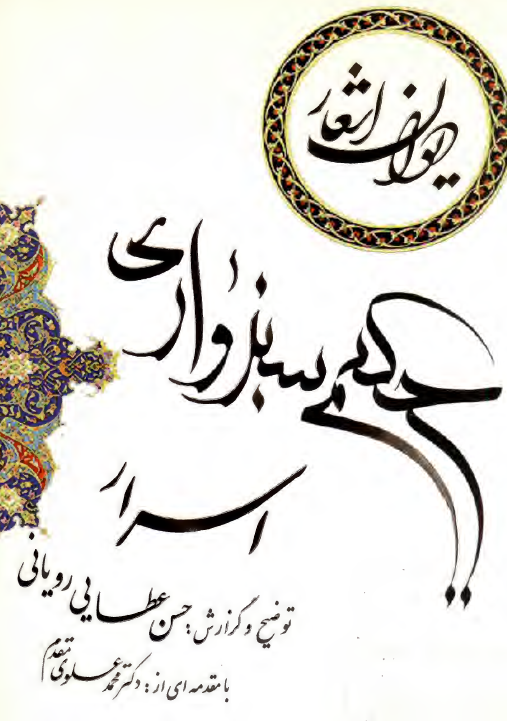 دیوان اشعار
حکیم سبزواری
اسرار
توضیح و گزارش: حسن عطایی رویانی
با مقدمه ای از: دکتر محمد علوی مقدم